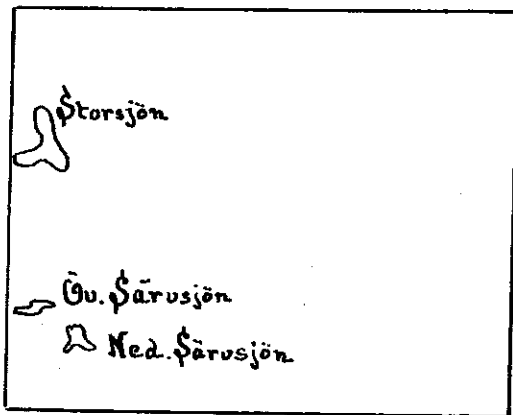 Storsjön
Öv. Särvsjön
Ned. Särvsjön